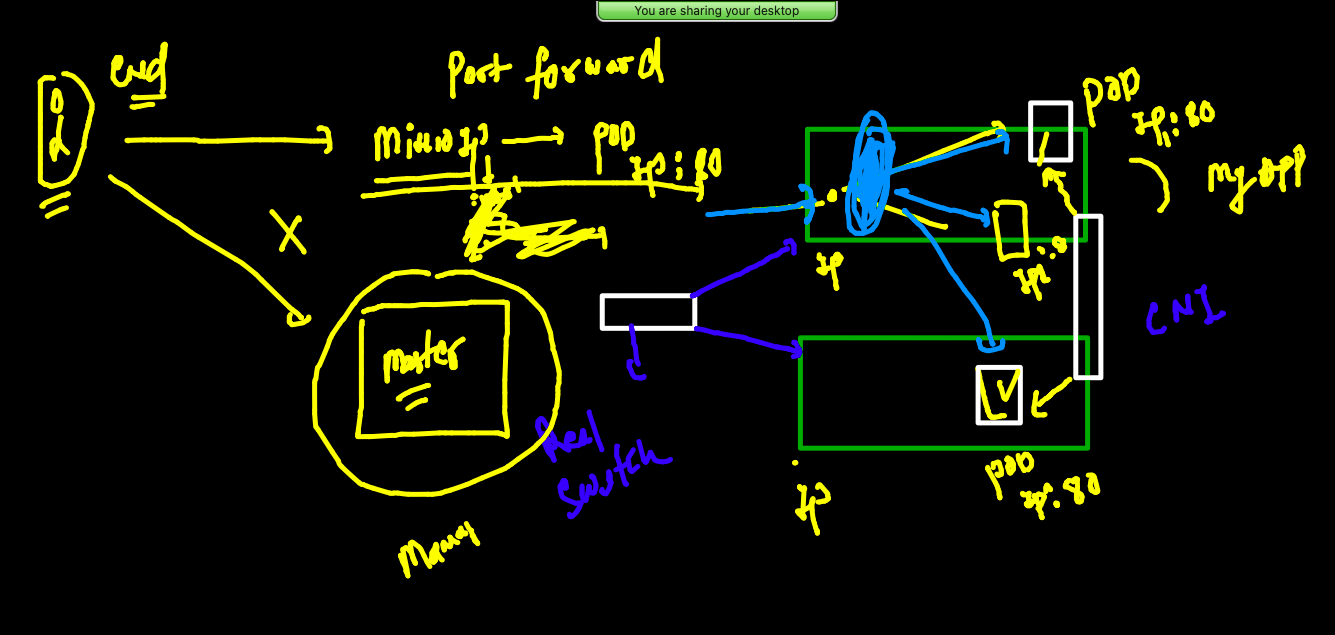 You are sharing your desktop
end
Port forward
Minion IP → POD
IP:80
X
Master
Manag
Real
Switch
IP
POD
IP:80
My APP
IP:8
CNI
IP
POD
IP:80